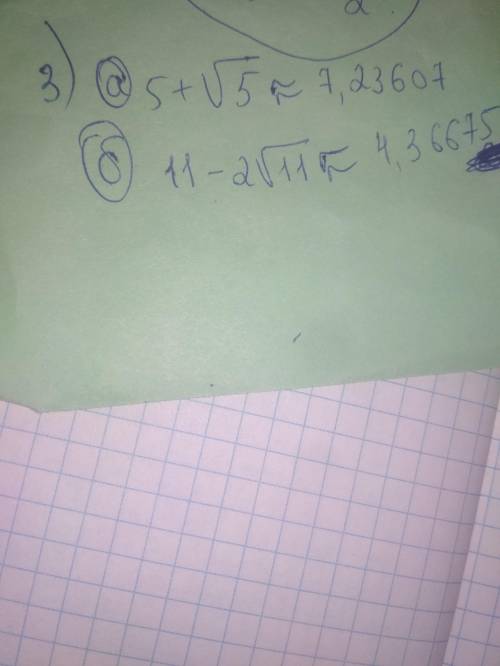 2.
3) а 5+√5 ≈ 7,23607
б 11-2√11 ≈ 4,36675